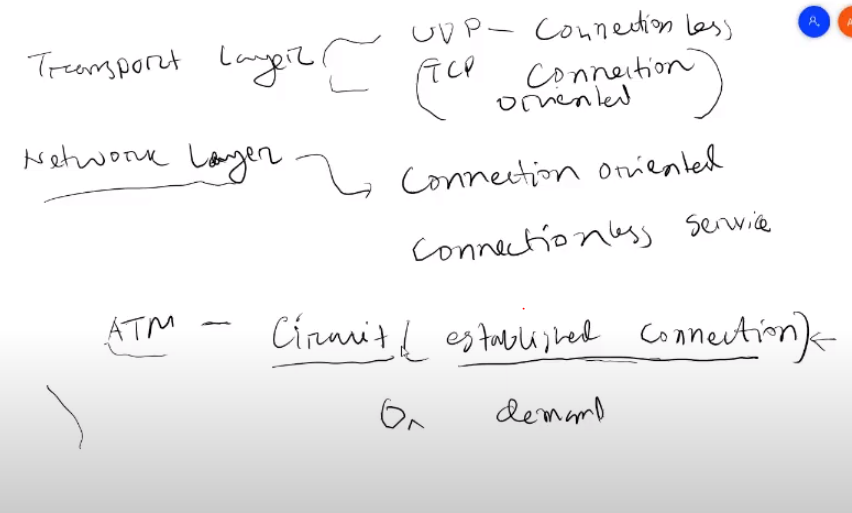 Transport Layer
UDP - Connection less
TCP Connection
oriented
Network Layer
Connection oriented
Connectionless service
ATM - Circuit ( established connection)
On demand